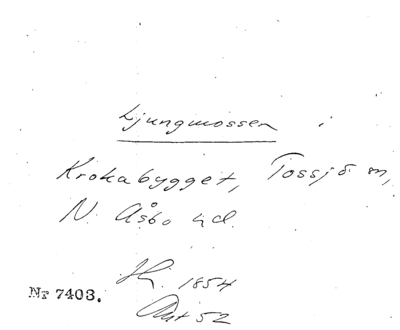 Ljungmossen i
Krokabygget, Tossjö m,
N. Åsbo hd.
Hj. 1854
Akt 52
Nr 7403.